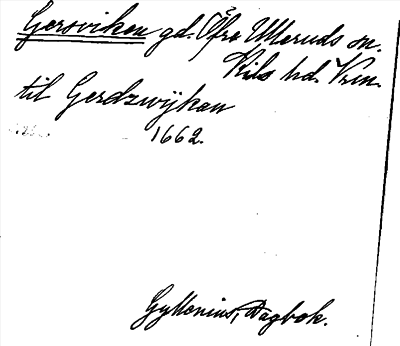 Gersviken gd. Öfre Ulleruds sn.
Kils hd. Vrm.
til Gerdzwijkan
1662.
Gyllenius, Dagbok.